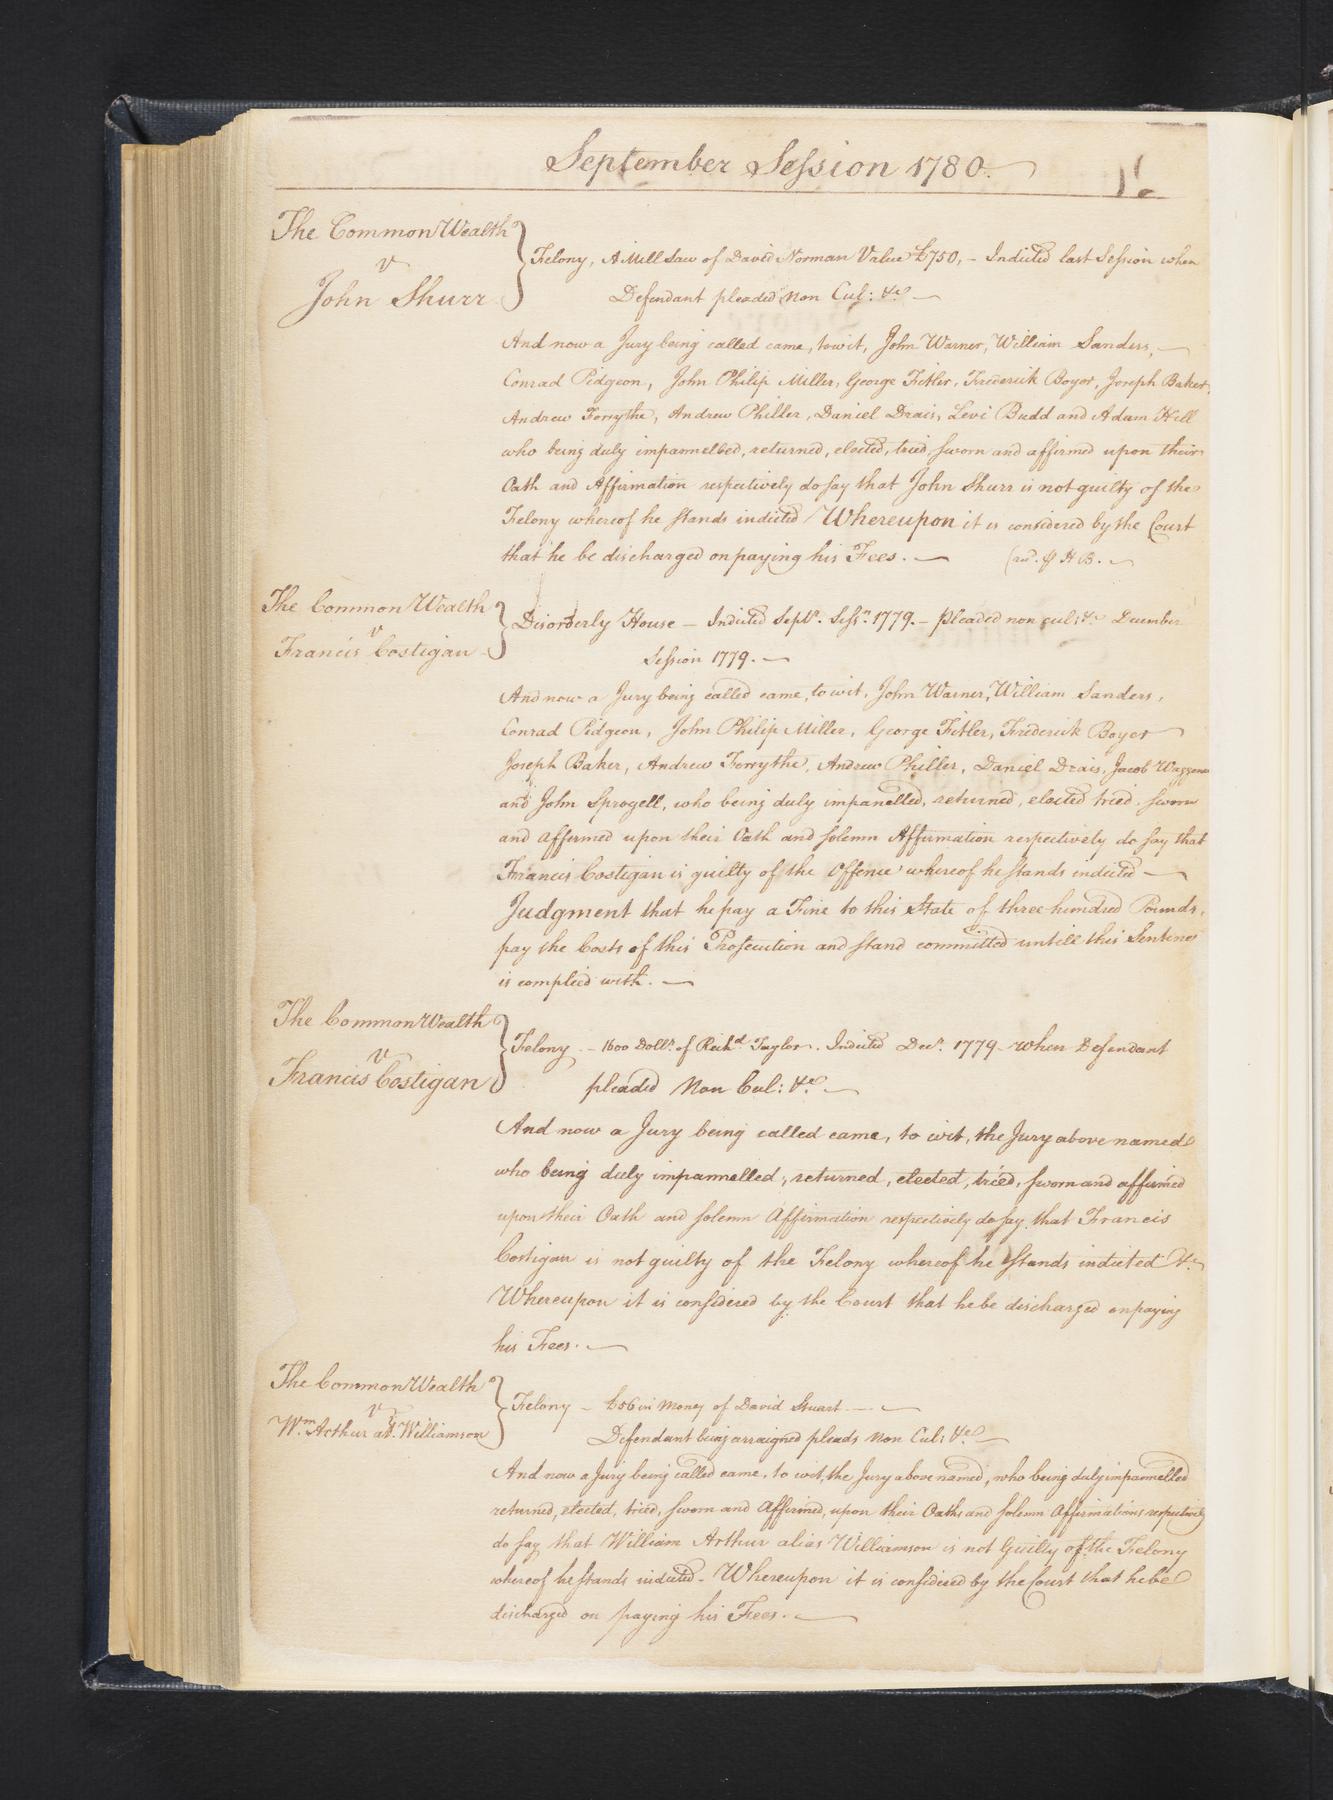 September Session 1780.
The CommonWealth
v
John Shurr
Felony, A Mill Saw of David Norman Value £750, - Indicted last Session when
Defendant pleaded Non Cul: &c
And now a Jury being called came, to wit, John Warner, William Sanders,
Conrad Pidgeon, John Philip Miller, George Fitler, Frederick Boyer, Joseph Baker,
Andrew Forsythe, Andrew Philler, Daniel Drais, Levi Budd and Adam Hill
who being duly impannelled, returned, elected, tried, sworn and affirmed upon their
Oath and Affirmation respectively do say that John Shurr is not guilty of the
Felony whereof he stands indicted Whereupon it is considered by the Court
that he be discharged on paying his Fees.
The Common Wealth
v
Francis Costigan
Disorderly House - Indicted Sepr. Sessn. 1779. - Pleaded non cul: &c December
Session 1779.
And now a Jury being called came, to wit, John Warner, William Sanders,
Conrad Pidgeon, John Philip Miller, George Fitler, Frederick Boyer
Joseph Baker, Andrew Forsythe, Andrew Philler, Daniel Drais, Jacob Waggoner
and John Sprogell, who being duly impanelled, returned, elected tried, sworn
and affirmed upon their Oath and solemn Affirmation respectively do say that
Francis Costigan is guilty of the Offence whereof he stands indicted
Judgment that he pay a Fine to this State of three hundred Pounds,
pay the Costs of this Prosecution and stand committed untill this Sentence
is complied with.
The CommonWealth
v
Francis Costigan
Felony - 1600 Dollrs. of Richd. Taylor. Indicted Decr. 1779 - when Defendant
pleaded Non Cul: &c.
And now a Jury being called came, to wit, the Jury above named
who being duly impannelled, returned, elected, tried, sworn and affirmed
upon their Oath and solemn Affirmation respectively do say that Francis
Costigan is not guilty of the Felony whereof he stands indicted &c
Whereupon it is considered by the Court that he be discharged on paying
his Fees.
The CommonWealth
v
Wm. Arthur als. Williamson
Felony - £56 in Money of David Stuart
Defendant being arraigned pleads Non Cul: &c.
And now a Jury being called came, to wit, the Jury above named, who being duly impannelled
returned, elected, tried, sworn and Affirmed, upon their Oaths and solemn Affirmations respectively
do say that William Arthur alias Williamson is not Guilty of the Felony
whereof he stands indicted - Whereupon it is considered by the Court that he be
discharged on paying his Fees.